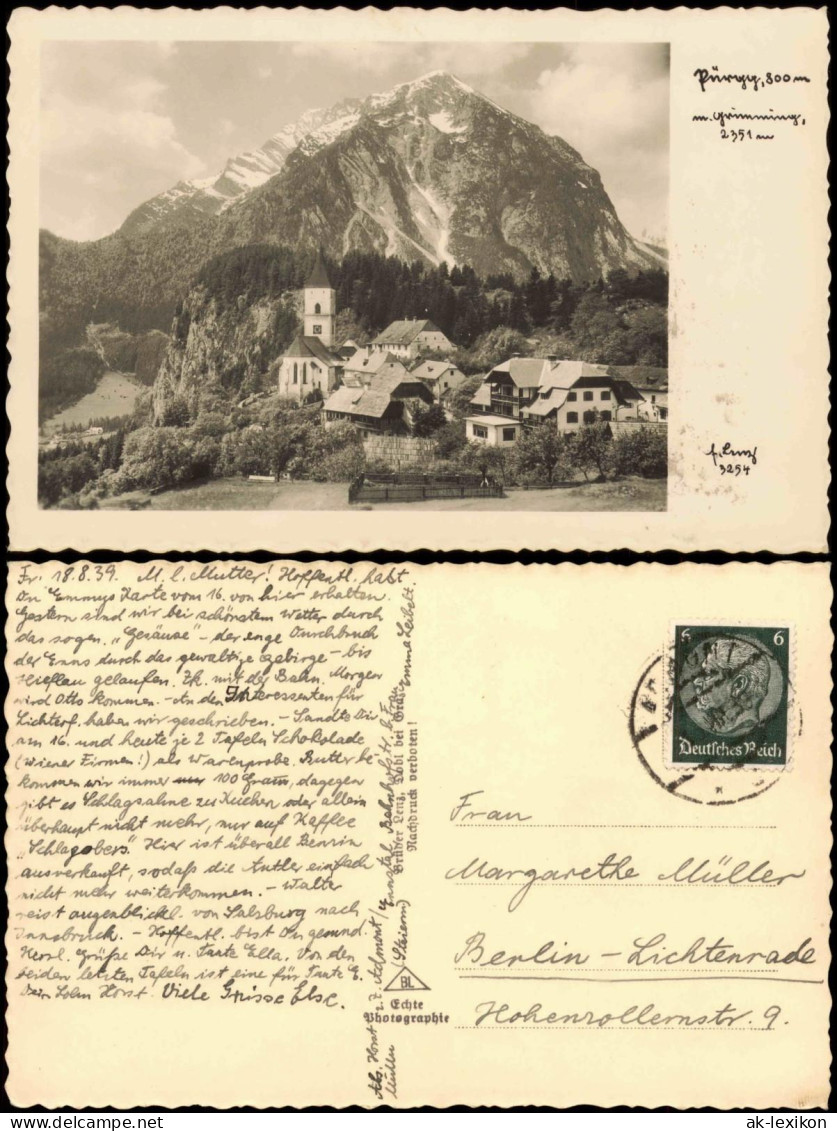 Pürgg, 800 m
m. Grimming,
2351 m
f. Lenz
3254
Fr. 18.8.39. M. l. Mutter! Hoffentl. habt
Du Emmys Karte vom 16. von hier erhalten.
Gestern sind wir bei schönstem Wetter durch
das sogen. „Gesäuse" - der enge Durchbruch
der Enns durch das gewaltige Gebirge - bis
Hieflau gelaufen. Zk. mit der Bahn. Morgen
wird Otto kommen. - An den Interessenten für
Lichterf. haben wir geschrieben. - Sandte Dir
am 16. und heute je 2 Tafeln Schokolade
(Wiener Firmen!) als Warenprobe. Butter be
kommen wir immer 100 Gram, dagegen
gibt es Schlagsahne zu Kuchen oder allein
überhaupt nicht mehr, nur auf Kaffee
"Schlagobers". Hier ist überall Benzin
ausverkauft, sodaß die Autler einfach
nicht mehr weiterkommen. - Walter
reist augenblickl. von Salzburg nach
Innsbruck. - Hoffentl. bist Du gesund.
Herzl. Grüße Dir u. Tante Ella. Von den
beiden letzten Tafeln ist eine für Tante E.
Dein Sohn Horst. Viele Grüsse Else.
Abs. Horst Müller
z. Z. Admont/Ennstal, Bahnhofstr. b. Frau Emma Leibelt
(Steierm)
Brüder Lenz, Dobl bei Graz
Nachdruck verboten!
BL
Echte
Photographie
6 6
Deutsches Reich
Frau
Margarethe Müller
Berlin - Lichtenrade
Hohenzollernstr. 9.
© ak-lexikon
www.ak-lexikon.com